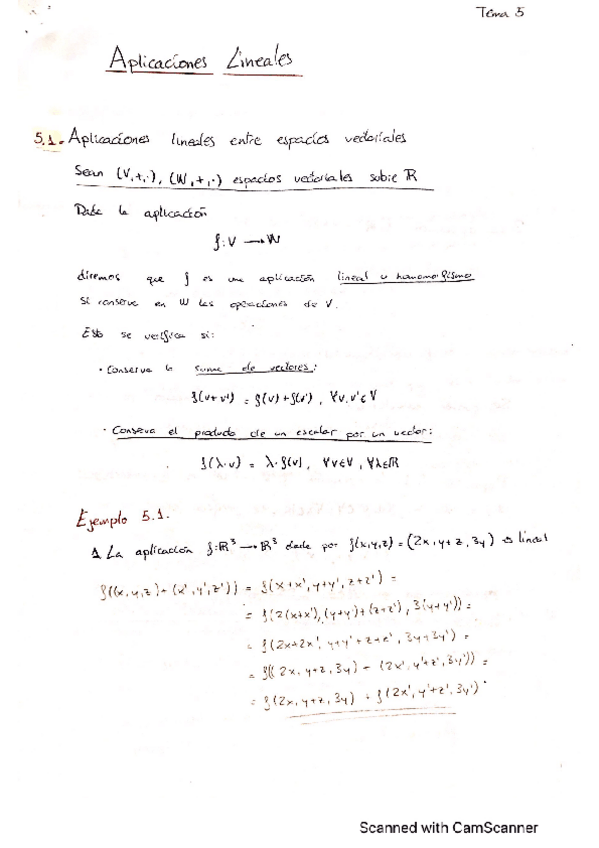 Tema 5
Aplicaciones Lineales
5.1.- Aplicaciones lineales entre espacios vectoriales
Sean (V,+,·), (W,+,·) espacios vectoriales sobre ℝ
Dada la aplicación
f: V → W
diremos que f es una aplicación lineal u homomorfismo
si conserva en W las operaciones de V.
Esto se verifica si:
· Conserva la suma de vectores:
f(v+v') = f(v)+f(v'), ∀v,v'∈V
· Conserva el producto de un escalar por un vector:
f(λ·v) = λ·f(v), ∀v∈V, ∀λ∈ℝ
Ejemplo 5.1.
1. La aplicación f:ℝ³ → ℝ³ dada por f(x,y,z) = (2x, y+z, 3y) es lineal
f((x,y,z)+(x',y',z')) = f(x+x', y+y', z+z') =
= f(2(x+x'), (y+y')+(z+z'), 3(y+y')) =
= f(2x+2x', y+y'+z+z', 3y+3y') =
= f((2x, y+z, 3y) + (2x', y'+z', 3y')) =
= f(2x, y+z, 3y) + f(2x', y'+z', 3y')
Scanned with CamScanner